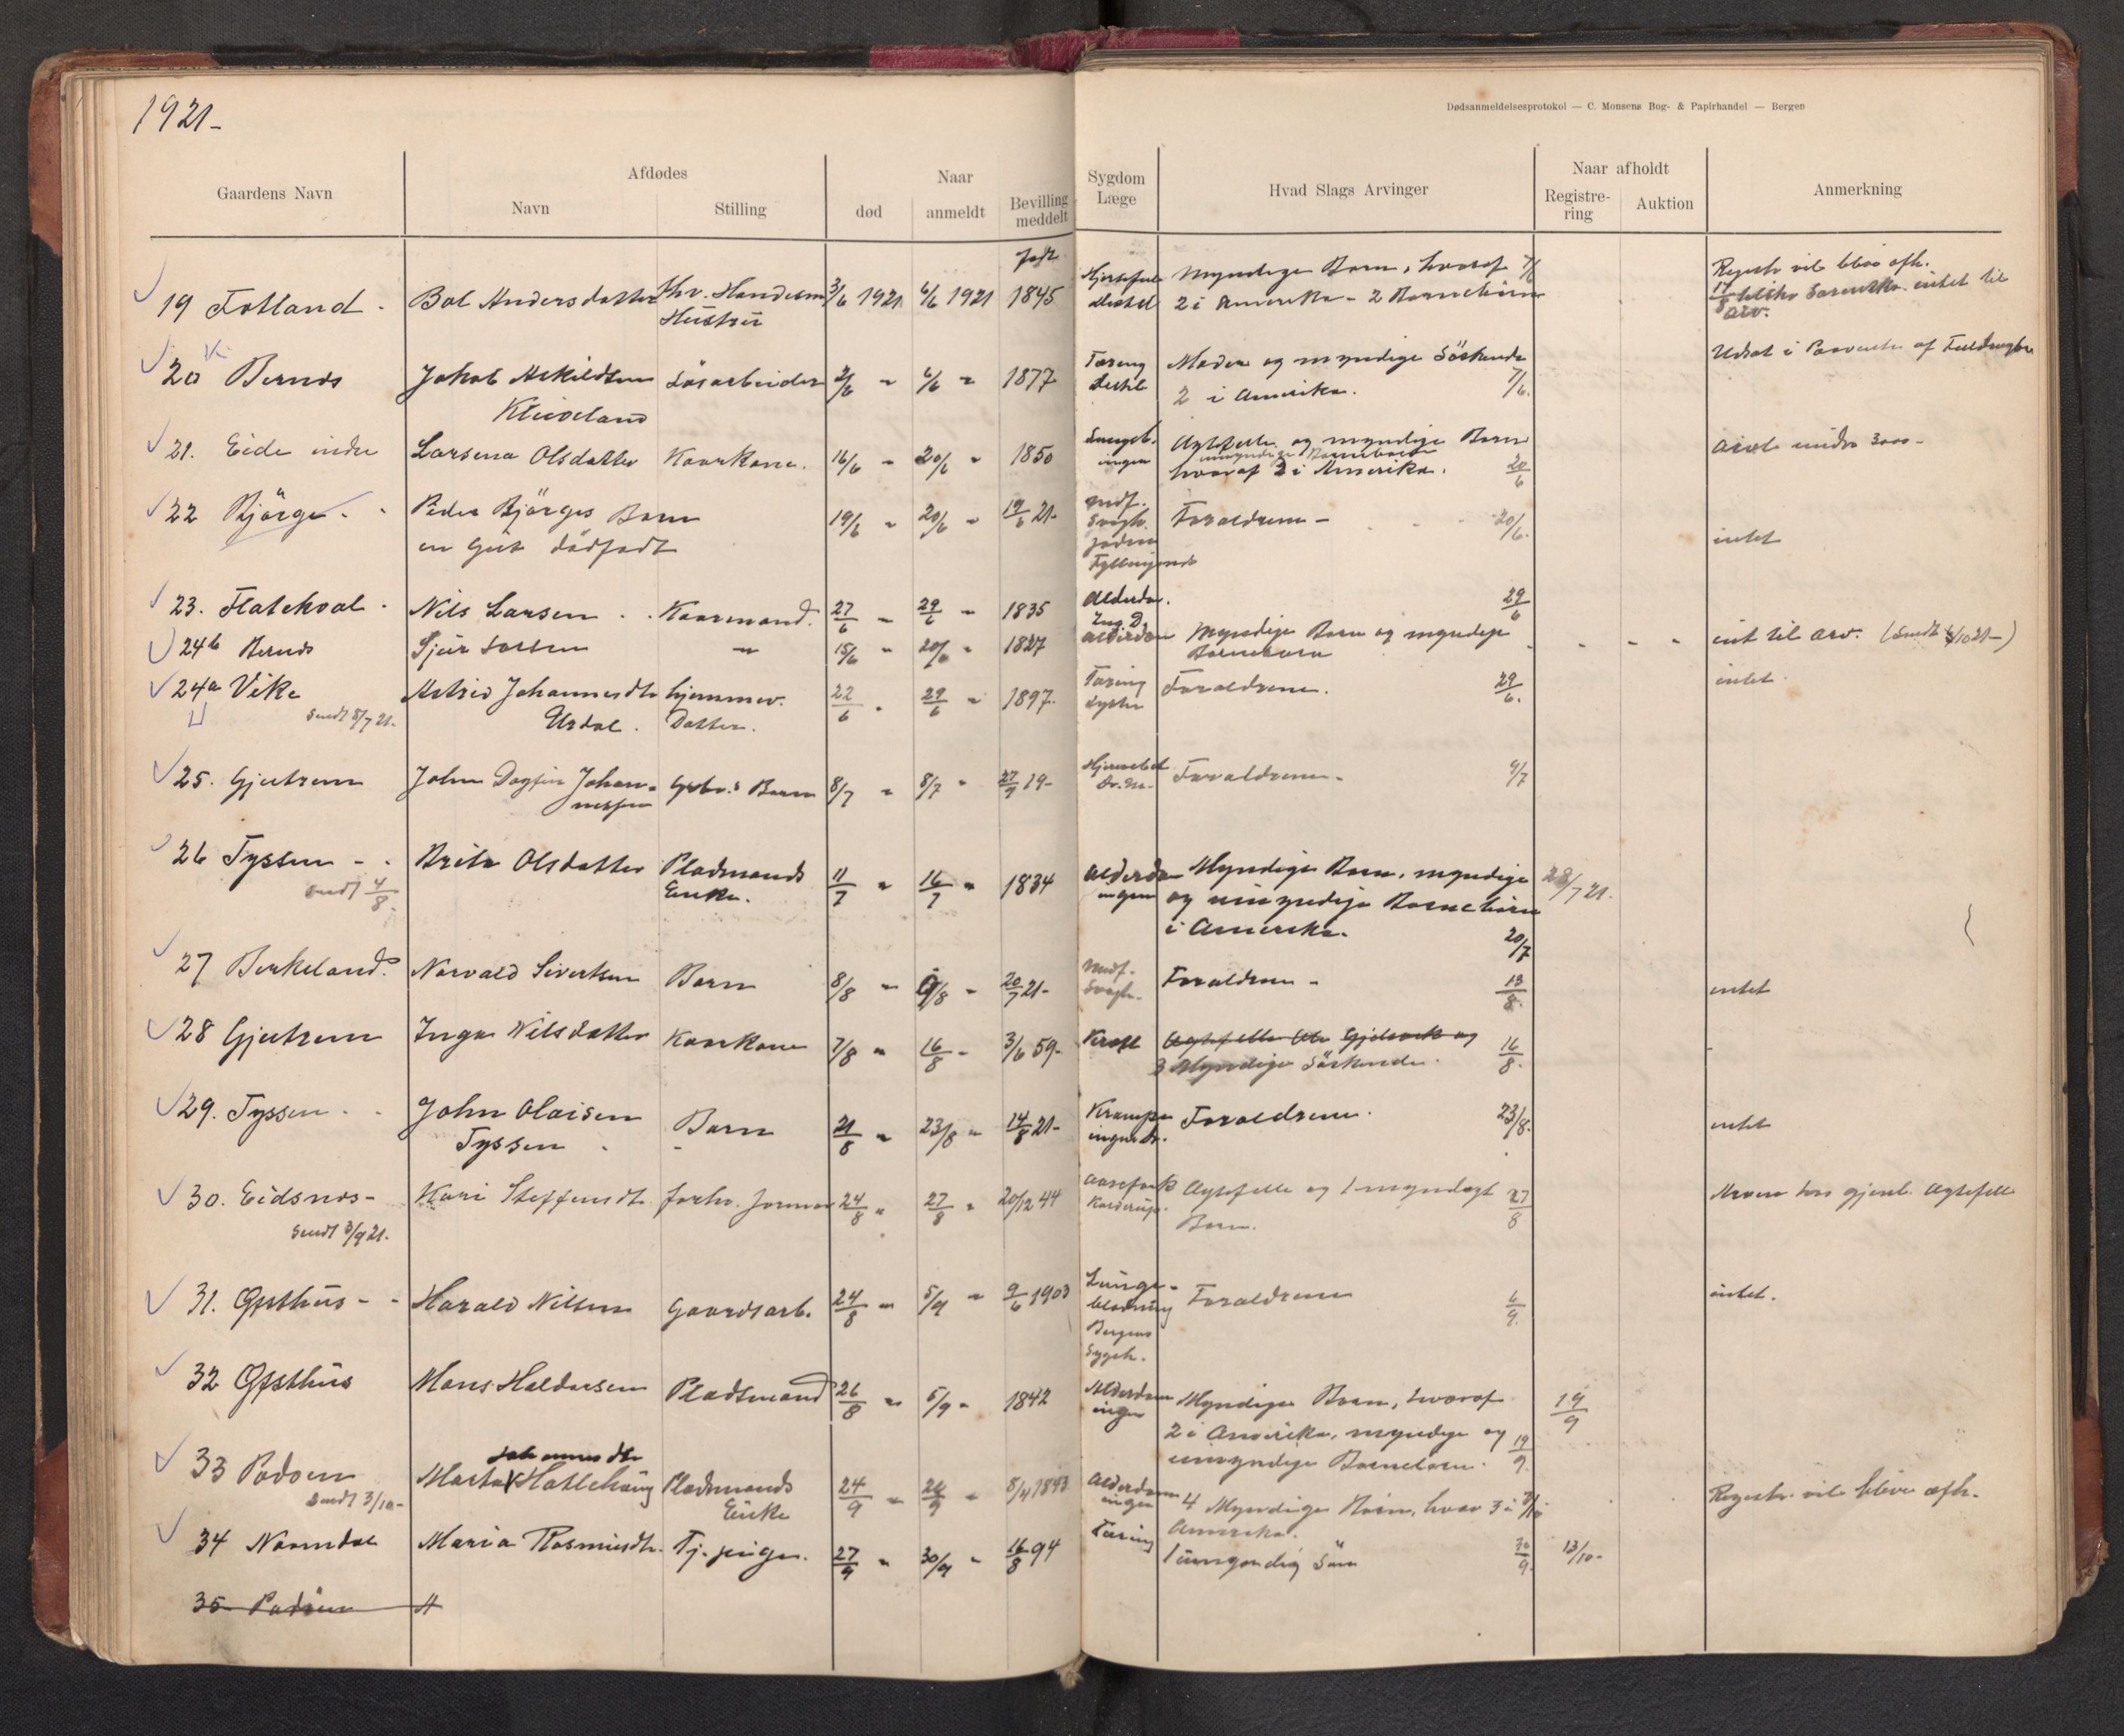 1921-
Dødsanmeldelsesprotokol — C. Monsens Bog- & Papirhandel — Bergen
Gaardens Navn
Afdødes
Navn
Stilling
Naar
død
anmeldt
Bevilling meddelt
Sygdom
Læge
Hvad Slags Arvinger
Naar afholdt
Registre-
ring
Auktion
Anmerkning
født
19 Fotland - Bol Andersdatter 3/6 1921 6/6 1921 1845 myndige Børn, hvoraf 7/6
Hustru 2 i Amerika - 2 Børnebørn
Registr. vil blive afh.
intet til
arv.
20 Bernes Jakob Askildsen Løsarbeider 2/6 " 6/6 " 1877 Tæring Moder og myndige Søskende
Kleiveland 2 i Amerika. 7/6.
21. Eide indre Larsena Olsdatter Kaarkone. 16/6 " 20/6 " 1850 Ægtefelle og myndige Børn
ingen hvoraf 2 i Amerika. 20/6
under 3000-
22 Bjørge - Peder Bjørges Barn 19/6 " 20/6 " 19/6 21- medf. Forældrene - 20/6.
en Gut dødfødt
svagh.
intet
23. Flatekval - Nils Larsen Kaarmand. 27/6 " 29/6 " 1835 Alderdom. 29/6
24b Bernes Sjur Larsen " 15/6 " 20/6 " 1827 Alderdom Myndige Børn og myndige
Børnebørn
int til arv. (Sendt 4/10 21-)
24a Vike Astrid Johannesdtr hjemmev. 22/6 " 29/6 " 1897. Tæring Forældrene. 29/6. intet
Sendt 5/7 21. Urdal. Datter.
25. Gjeitrem John Dagfin Johan- Grbr.s Barn 8/7 " 8/7 " 27/9 19- Forældrene - 9/7
nessen
26 Tyssen - - Brita Olsdatter Pladsmands 11/7 " 16/7 " 1834 Alderdom Myndige Børn, myndige 28/7 21.
Sendt 4/8. Enke. ingen og umyndige Børnebørn
i Amerika. 20/7
27 Birkeland. Norvald Sivertsen Barn 8/8 " 9/8 " 20/7 21- medf. Forældrene - 13/8. intet
svagh.
28 Gjeitrem Inga Nilsdatter Kaarkone 7/8 " 16/8 " 3/6 59- Kræft Ægtefelle Ole Gjelsvik og
3 Myndige Søskende. 16/8.
29. Tyssen - - John Olaisen Barn 21/8 " 23/8 " 14/8 21- Krampe Forældrene. 23/8. intet
Tyssen
30. Eidsnes - Kari Steffensdtr forhv. Jormor 24/8 " 27/8 " 20/12 44 Ægtefelle og 1 myndigt 27/8
Sendt 3/9 21. Barn.
gjenl. Ægtefelle
31. Gjsthus - - Harald Nilsen Gaardsarb. 24/8 " 5/9 " 9/6 1903 Lunge- Forældrene 6/9. intet.
blødning
Bergens
Sygeh.
32 Gjsthus Mons Haldorsen Pladsmand 26/8 " 5/9 " 1842 Alderdom Myndige Børn, hvoraf 19/9
ingen 2 i Amerika, myndige og 19/9.
umyndige Børnebørn.
33 Johannesdtr
Marta Hatlehaug Pladsmands 24/9 " 26/9 " 5/4 1843 Alderdom 4 Myndige Børn, hvor 3 i 3/10
Sendt 3/10- Enke ingen Amerika.
Registr. vil blive afh.
34 Maria Rasmusdtr. Tj. pige. 27/9 " 30/9 " 16/8 94 Tæring 1 umyndig Søn 30/9. 13/10-
35